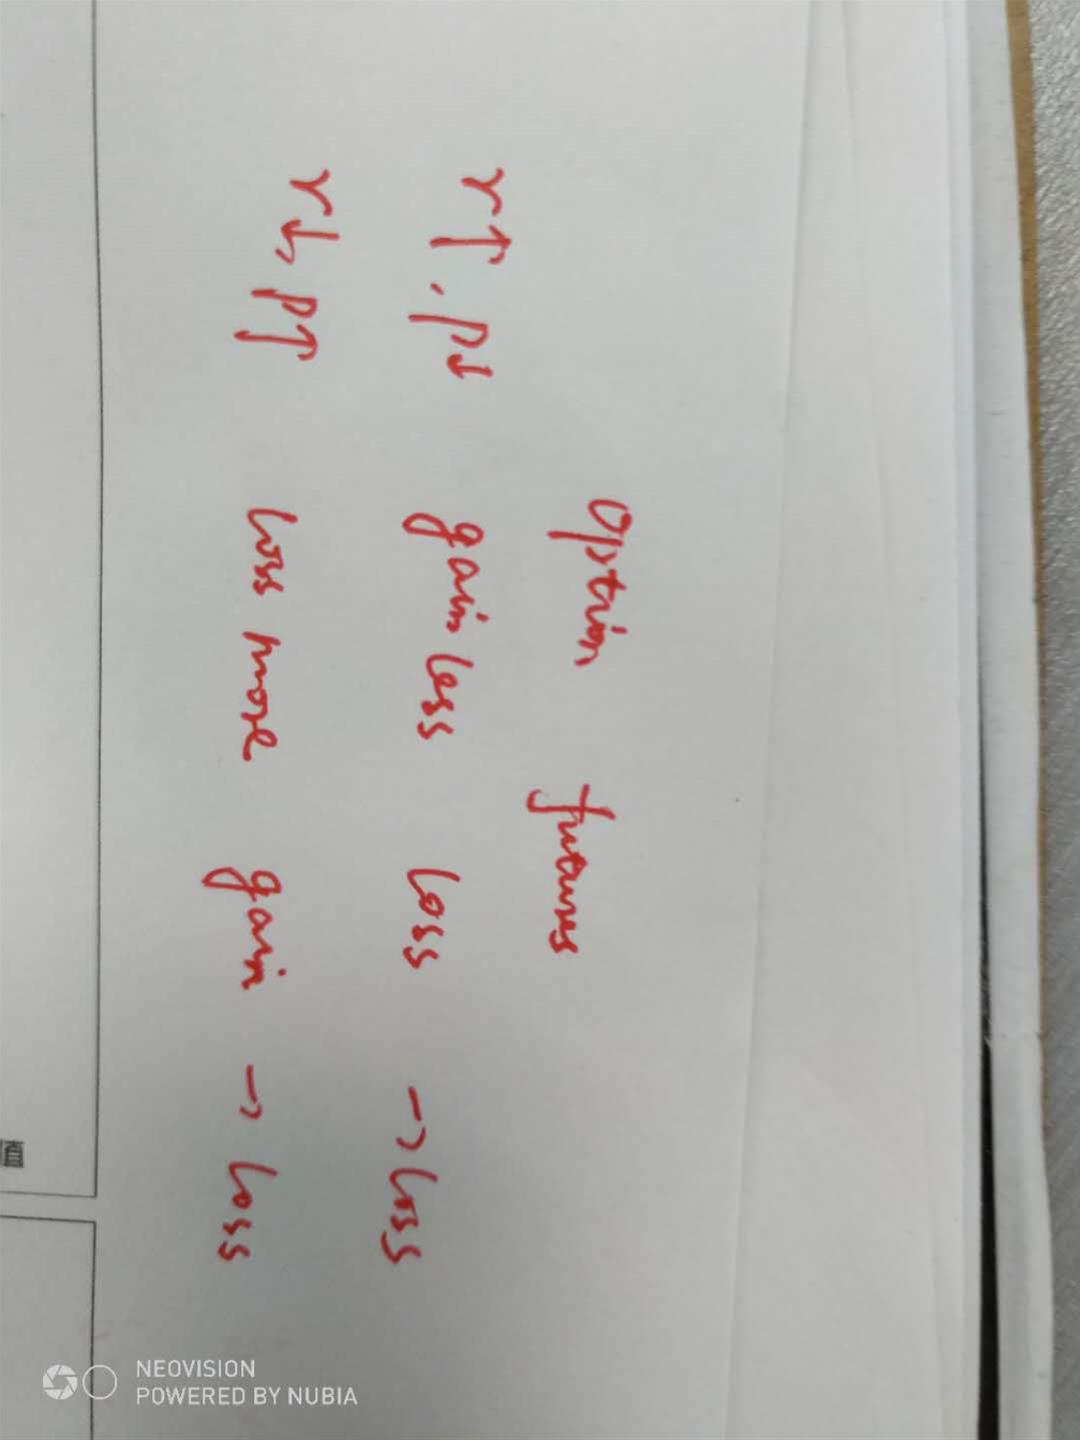 option futures
r↑, p↓ gain less loss → loss
r↓, p↑ loss more gain → loss
NEOVISION
POWERED BY NUBIA